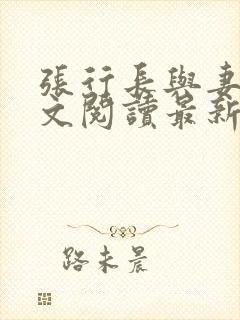 張行長與妻
文閱讀最新
路未晨